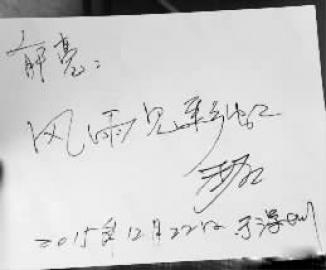 亮：
风雨见彩虹
2015年12月22日 于深圳